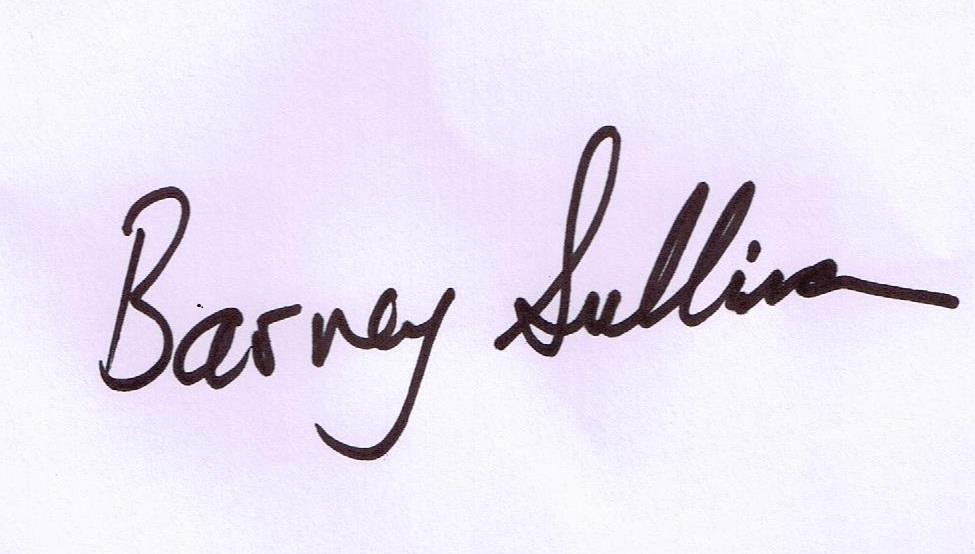 Barney Sullivan